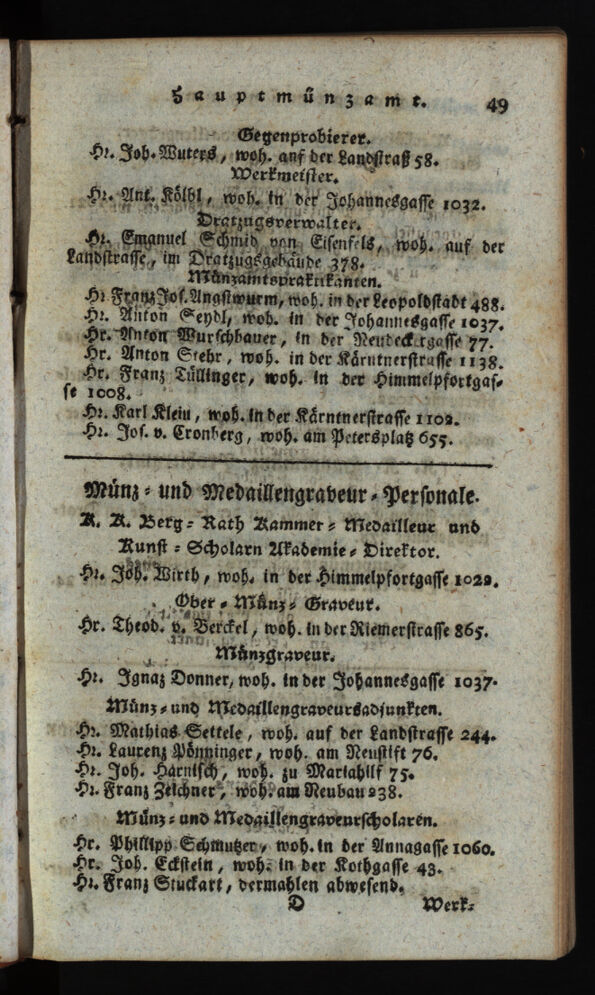 Hauptmünzamt. 49
Gegenprobierer.
Hr. Joh. Wuters, woh. auf der Landstraß 58.
Werkmeister.
Hr. Ant. Kölbl, woh. in der Johannesgasse 1032.
Dratzugsverwalter.
Hr. Emanuel Schmid von Eisenfels, woh. auf der
Landstrasse, im Dratzugsgebäude 378.
Münzamtspraktikanten.
Hr Franz Jos. Angstwurm, woh. in der Leopoldstadt 488.
Hr. Anton Seydl, woh. in der Johannesgasse 1037.
Hr. Anton Wurschbauer, in der Neudeckergasse 77.
Hr. Anton Stehr, woh. in der Kärntnerstrasse 1138.
Hr. Franz Tüllinger, woh. in der Himmelpfortgas-
se 1008.
Hr. Karl Klein, woh. in der Kärntnerstrasse 1102.
Hr. Jos. v. Cronberg, woh. am Petersplatz 655.
Münz- und Medaillengraveur-Personale.
K. K. Berg-Rath Kammer-Medailleur und
Kunst-Scholarn Akademie-Direktor.
Hr. Joh. Wirth, woh. in der Himmelpfortgasse 1022.
Ober-Münz-Graveur.
Hr. Theod. v. Berckel, woh. in der Riemerstrasse 865.
Münzgraveur.
Hr. Ignaz Donner, woh. in der Johannesgasse 1037.
Münz- und Medaillengraveursadjunkten.
Hr. Mathias Settele, woh. auf der Landstrasse 244.
Hr. Laurenz Pönninger, woh. am Neustift 76.
Hr. Joh. Harnisch, woh. zu Mariahilf 75.
Hr. Franz Zeichner, woh. am Neubau 238.
Münz- und Medaillengraveurscholaren.
Hr. Phillipp Schmutzer, woh. in der Annagasse 1060.
Hr. Joh. Eckstein, woh. in der Kothgasse 43.
Hr. Franz Stuckart, dermahlen abwesend.
D Werk-